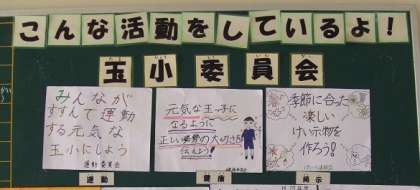 こんな活動をしているよ!
玉小委員会
みんなが
すすんで運動
する元気な
玉小にしよう
運動委員会
元気な玉っ子に
なるように
正しい姿勢の大切さを
伝えよう!
季節に合った
楽しい
けい示物を
作ろう!
運動
健康
掲示